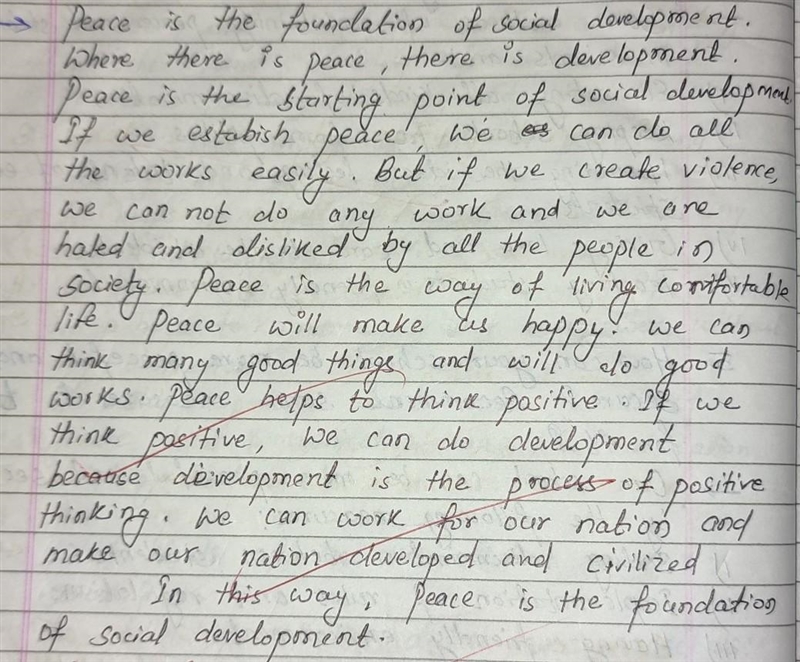 → Peace is the foundation of social development.
Where there is peace, there is development.
Peace is the starting point of social development
If we estabish peace, we can do all
the works easily. But if we create violence,
we can not do any work and we are
hated and disliked by all the people in
society. Peace is the way of living comfortable
life. Peace will make us happy. we can
think many good things and will do good
works. Peace helps to think positive. If we
think positive, we can do development
because development is the process of positive
thinking. We can work for our nation and
make our nation developed and civilized
In this way, Peace is the foundation
of social development.